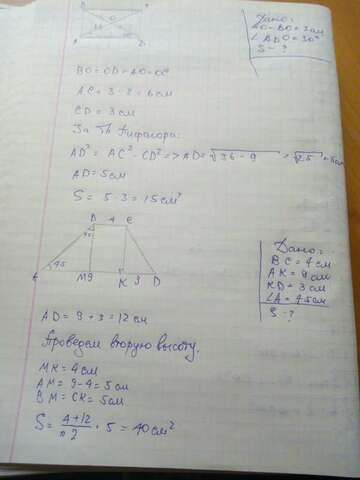 Дано:
AO = BO = 3 см
∠ADO = 30°
S - ?
BO = OD = AO = OC
AC = 3 · 2 = 6 см
CD = 3 см
За Th Пифагора:
AD² = AC² - CD² => AD = √36 - 9 = √25 = 5 см
AD = 5 см
S = 5 · 3 = 15 см²
4 C
45
A M 9 K 3 D
Дано:
BC = 4 см
AK = 9 см
KD = 3 см
∠A = 45 см
S - ?
AD = 9 + 3 = 12 см
Проведем вторую высоту.
MK = 4 см
AM = 9 - 4 = 5 см
BM = CK = 5 см
S = 4+12 / 2 · 5 = 40 см²